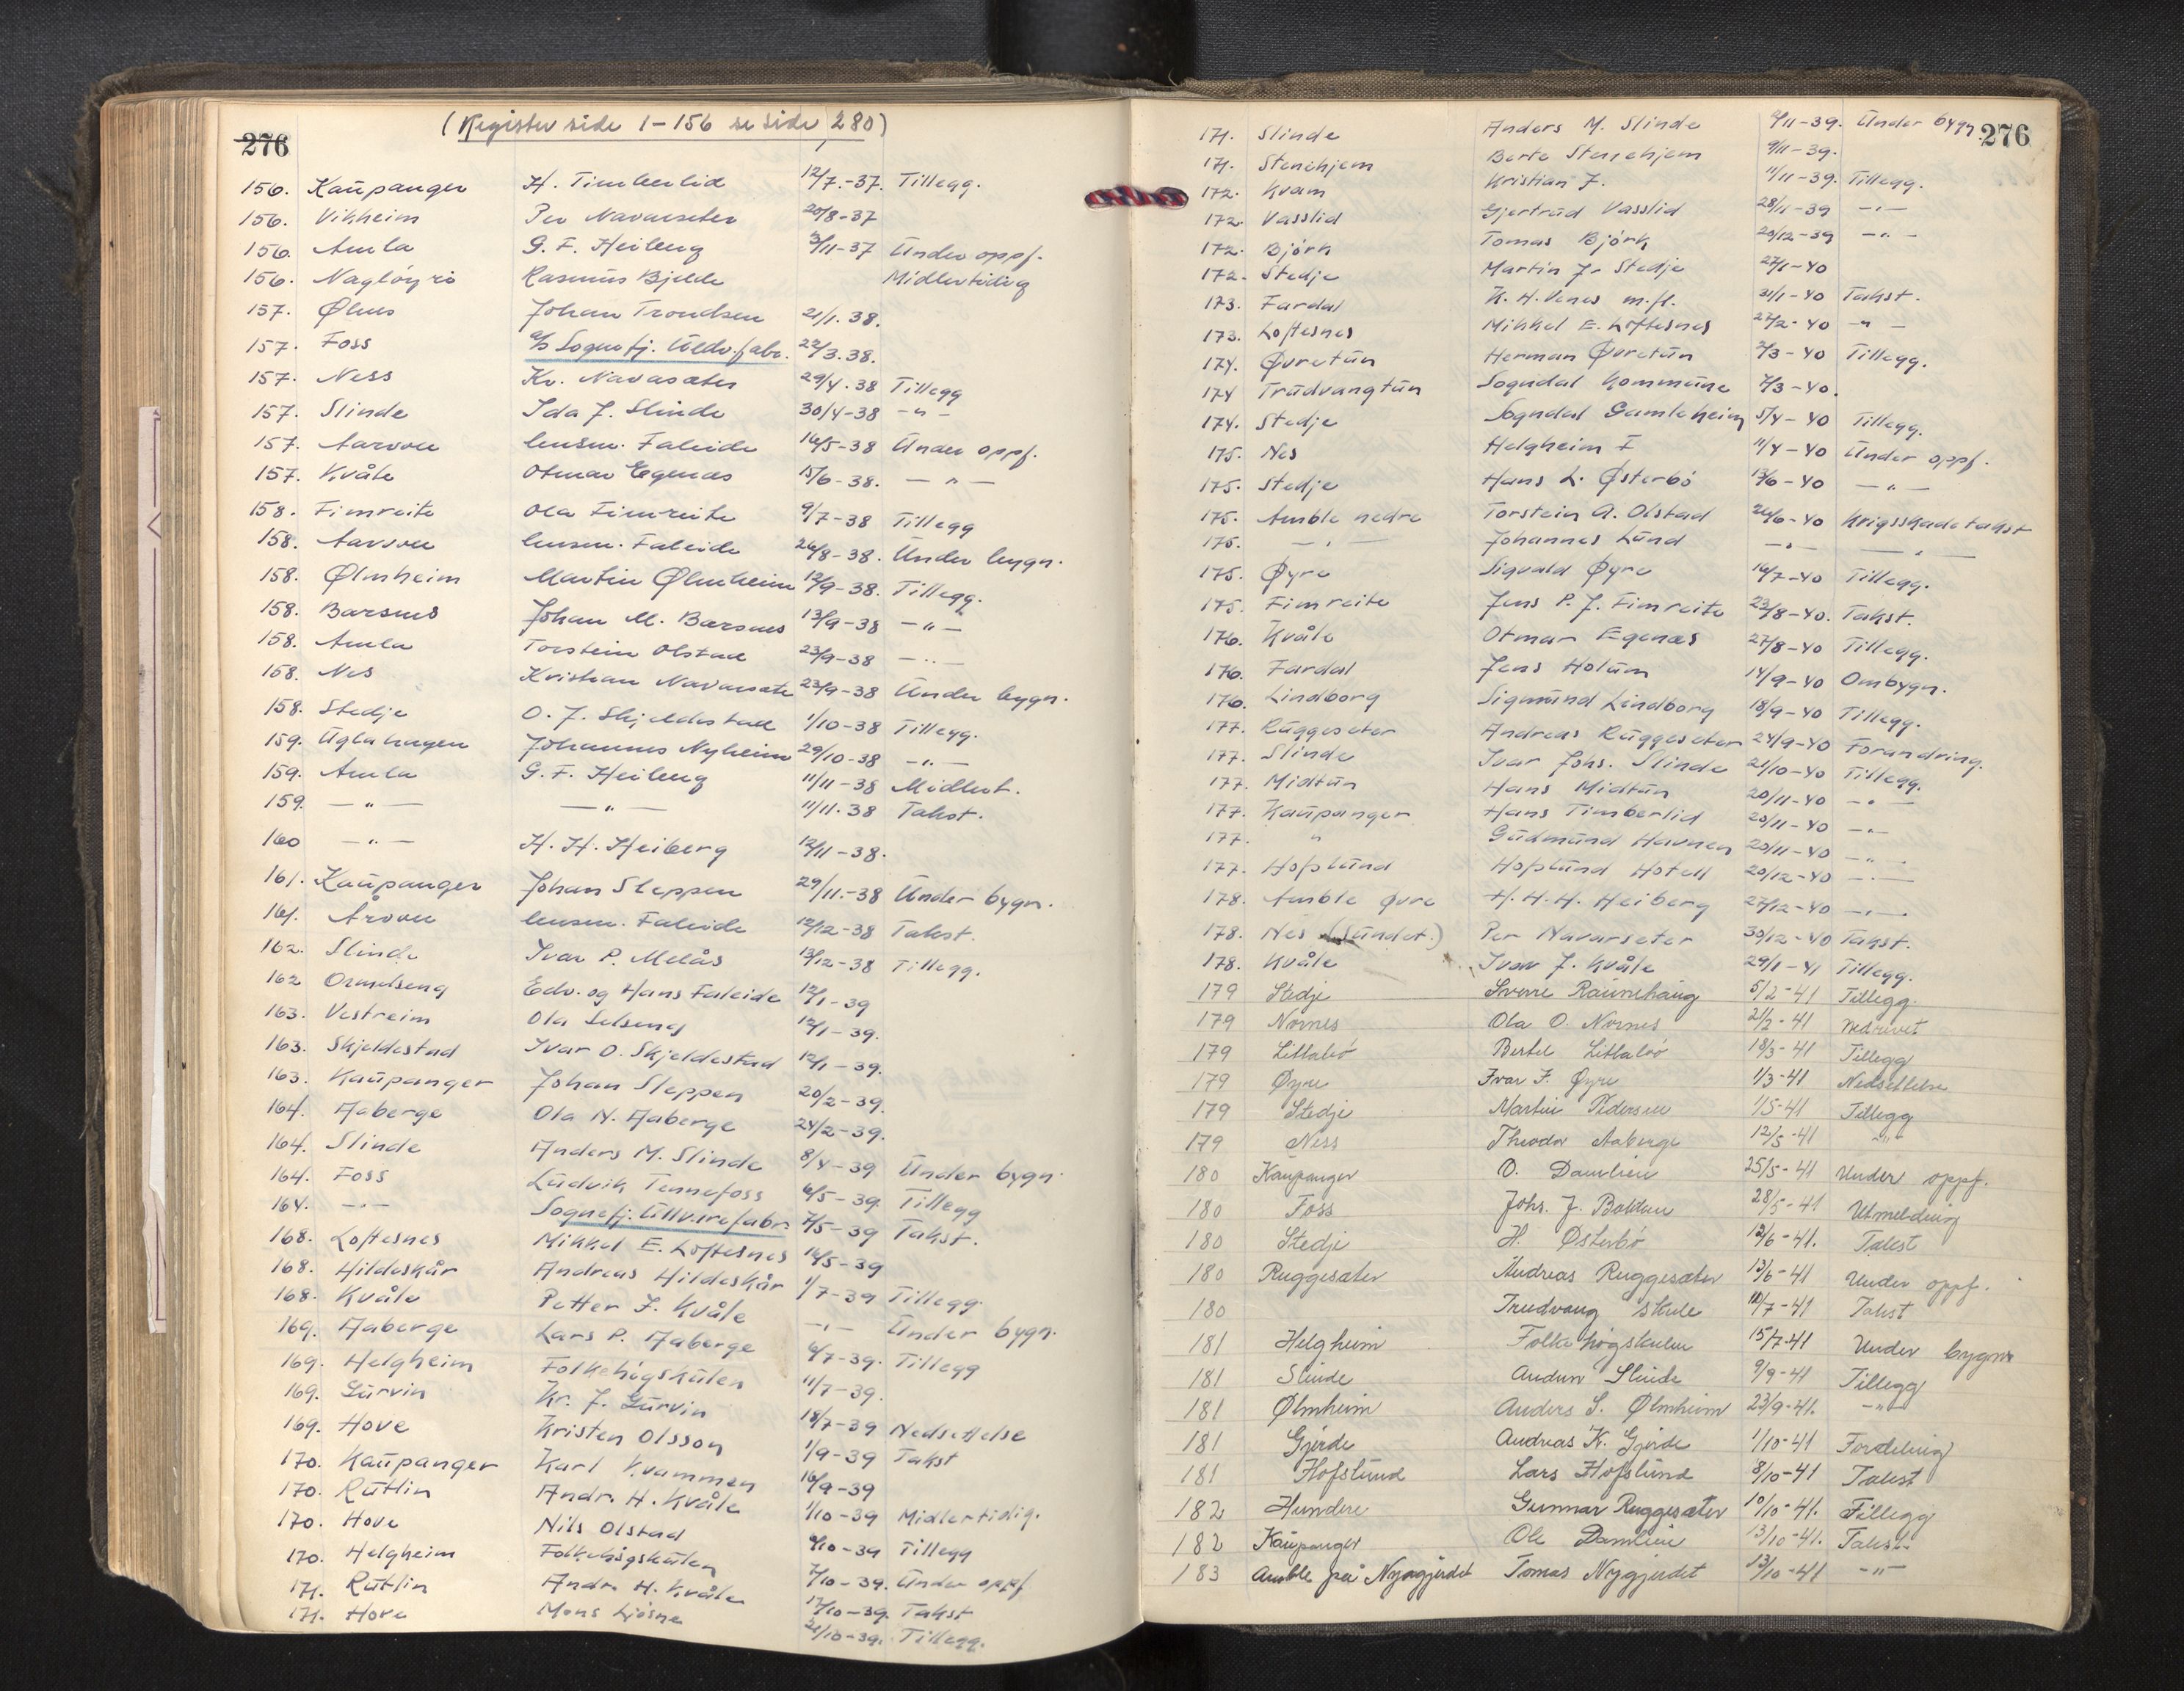 (Register side 1-156 se side 280)
276
156. Kaupanger H. Timberlid 12/7.-37. Tillegg.
156. Vikheim Per Navarseter 20/8-37
156. Amla G. F. Heiberg 3/11-37 Under oppf.
156. Nagløyri Rasmus Bjelde Midlertidig
157. Ølnes Johan Trondsen 21/1.38.
157. Foss a/s Sognefj. Uldv.fabr. 22/3.38.
157. Ness Kr. Navarsæter 29/4.38 Tillegg
157. Slinde Ida J. Slinde 30/4-38 -"-
157. Aarvou lensm. Faleide 16/5-38 Under oppf.
157. Kvåle Otmar Egenæs 15/6-38. -"-
158. Fimreite Ola Fimreite 9/7-38 Tillegg
158. Aarvou lensm. Faleide 26/8-38. Under bygn.
158. Ølmheim Martin Ølmheim 12/9-38. Tillegg.
158. Barsnes Johan M. Barsnes 13/9-38 -"-
158. Amla Torstein Olstad 23/9-38 -"-
158. Nes Kristian Navarsete 23/9-38 Under bygn.
158. Stedje O. J. Skjeldestad 1/10-38 Tillegg.
159. Uglahagen Johannes Nyheim 29/10-38 -"-
159. Amla G. F. Heiberg 11/11-38 Midlert.
159. -"- -"- 11/11.38 Takst.
160 -"- H. H. Heiberg 12/11-38.
161. Kaupanger Johan Sleppen 29/11.-38 Under bygn.
161. Årvou lensm. Faleide 12/12-38 Takst.
162. Slinde Ivar P. Melås 13/12-38 Tillegg.
162 Ormelseng Edv. og Hans Faleide 12/1-39
163. Vestreim Ola Selseng 12/1-39.
163. Skjeldestad Ivar O. Skjeldestad 12/1-39.
163. Kaupanger Johan Sleppen 20/2-39.
164. Aaberge Ola N. Aaberge 24/2-39.
164. Slinde Anders M. Slinde 8/4-39 Under bygn.
164. Foss Ludvik Tennefoss 6/5-39. Tillegg
164. -"- Sognefj. Ullvarefabr. 7/5-39 Takst.
168. Loftesnes Mikkel E. Loftesnes 16/5-39
168. Hildeskår Andreas Hildeskår 1/7-39 Tillegg.
168. Kvåle Petter J. Kvåle -"- Under bygn.
169. Aaberge Lars P. Aaberge 6/7-39. Tillegg
169. Helgheim Folkehøgskulen 11/7-39.
169. Gurvin Kr. J. Gurvin 18/7-39 Nedsettelse
169. Hove Kristen Olsson 1/9-39 Takst
170. Kaupanger Karl Kvammen 16/9-39
170. Rutlin Andr. H. Kvåle 1/10-39 Midlertidig.
170. Hove Nils Olstad /10-39 Tillegg
170. Helgheim Folkehøgskulen 7/10-39. Under oppf
171. Rutlin Andr. H. Kvåle 17/10-39. Takst
171. Hove Mons Ljøsne 21/10-39. Tillegg.
276
171. Slinde Anders M. Slinde /11-39. Under bygn.
171. Stenehjem Berte Stenehjem 9/11-39.
172. Kvam Kristian J. 11/11-39. Tillegg.
172. Vasslid Gjertrud Vasslid 28/11-39 -"-
172. Björk Tomas Björk 20/12-39 -"-
172. Stedje Martin J. Stedje 27/1-40
173. Fardal K. H. Venes m.fl. 31/1-40 Takst.
173. Loftesnes Mikkel E. Loftesnes 27/2-40 -"-
174. Øvretun Herman Øvretun 2/3-40 Tillegg.
174 Trudvangtun Sogndal Kommune 7/3-40.
174. Stedje Sogndal Gamleheim 5/4-40 Tillegg.
175. Nes Helgheim I 11/4-40 Under oppf.
175. Stedje Hans L. Østerbö 13/6-40 -"-
175. Amble nedre Torstein A. Olstad 26/6-40 Krigsskadetakst
175. -"- Johannes Lund -"- -"-
175. Øyre Sigvald Øyre 16/7-40 Tillegg.
175. Fimreite Jens P. J. Fimreite 23/8-40. Takst.
176. Kvåle Otmar Egenæs 27/8-40 Tillegg.
176. Fardal Jens Holum 14/9-40 Ombygn.
176. Lindborg Sigmund Lindborg 18/9-40 Tillegg.
177. Ruggeseter Andreas Ruggeseter 24/9-40 Forandring.
177. Slinde Ivar Johs. Slinde 21/10-40 Tillegg.
177. Midtun Hans Midtun 20/11-40 -"-
177. Kaupanger Hans Timberlid 20/11-40 -"-
177. " Gudmund Havnen 20/11-40 -"-
177. Hofslund Hofslund Hotell 20/12-40 -"-
178. Amble øvre H. H. H. Heiberg 27/12-40 -"-
178. Nes (Sundet.) Per Navarseter 30/12-40 Takst.
178. Kvåle Ivar J. Kvåle 29/1-41 Tillegg.
179 Stedje Sverre Raunehaug 5/2-41 Tillegg.
179 Nornes Ola O. Nornes 21/2-41 Nedrivet
179 Littlabö Bertel Littlabö 18/3-41 Tillegg
179 Øyre Ivar F. Øyre 1/3-41 Nedsettelse
179 Stedje Martin Pedersen 1/5-41 Tillegg
179 Ness Theodor Aaberge 12/5-41 -"-
180 Kaupanger O. Damlien 25/5-41 Under oppf.
180 Foss Johs. J. Bolstad 28/5-41 Utmelding
180 Stedje H. Østerbö 12/6-41. Takst
180 Ruggesæter Andreas Ruggesæter 13/6-41 Under oppf.
180 Trudvang skule 10/7-41 Takst
181 Helgheim Folkehögskulen 15/7-41 Under bygn
181 Slinde Audun Slinde 9/9-41 Tillegg
181 Ølmheim Anders S. Ølmheim 23/9-41. -"-
181 Gjerde Andreas K. Gjerde 1/10-41 Fordeling
181 Hofslund Lars Hofslund 8/10-41 Takst
182 Hundere Gunnar Ruggesæter 10/10-41. Tillegg
182 Kaupanger Ole Damlien 13/10-41. Takst.
183 Amble på Nygjerdet Tomas Nygjerdet 13/10-41 -"-